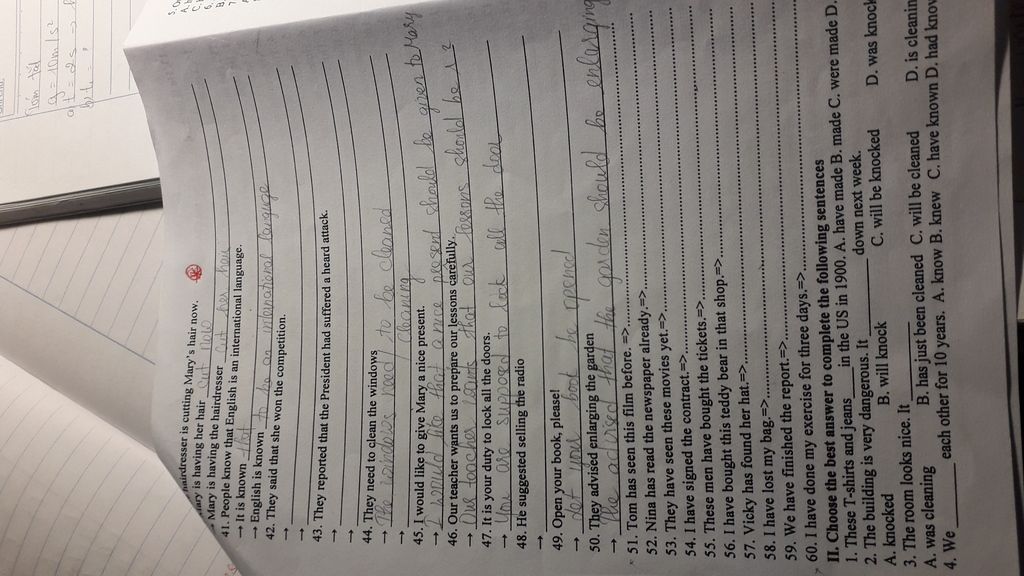 hairdresser is cutting Mary's hair now.
Mary is having her hair cut now
→ Mary is having the hairdresser cut her hair
41. People know that English is an international language.
→ It is known that
→ English is known to be an international language
42. They said that she won the competition.
→
→
43. They reported that the President had suffered a heard attack.
→
→
44. They need to clean the windows
→ The windows need to be cleaned
→ cleaning
45. I would like to give Mary a nice present.
→ I would like that a nice present should be given to Mary
46. Our teacher wants us to prepare our lessons carefully.
→ Our teacher wants that our lessons should be
47. It is your duty to lock all the doors.
→ You are supposed to lock all the doors
48. He suggested selling the radio
→
49. Open your book, please!
→ Let your book be opened
50. They advised enlarging the garden
→ The advised that the garden should be enlarging
51. Tom has seen this film before. =>
52. Nina has read the newspaper already.=>
53. They have seen these movies yet.=>
54. I have signed the contract.=>
55. These men have bought the tickets.=>
56. I have bought this teddy bear in that shop.=>
57. Vicky has found her hat.=>
58. I have lost my bag.=>
59. We have finished the report.=>
60. I have done my exercise for three days.=>
II. Choose the best answer to complete the following sentences
1. These T-shirts and jeans ____ in the US in 1900. A. have made B. made C. were made D.
2. The building is very dangerous. It ____ down next week.
A. knocked B. will knock C. will be knocked D. was knock
3. The room looks nice. It ____
A. was cleaning B. has just been cleaned C. will be cleaned D. is cleanin
4. We ____ each other for 10 years. A. know B. knew C. have known D. had know